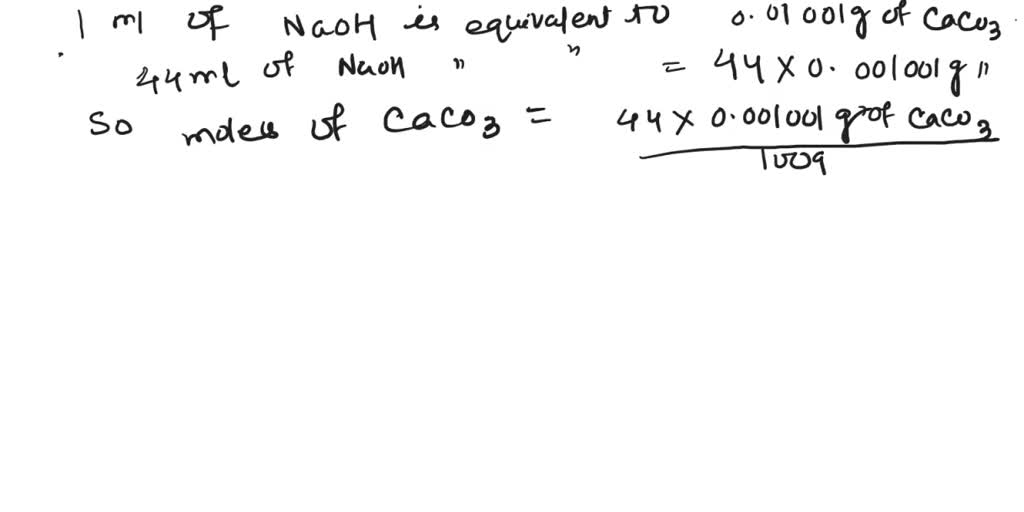 1 ml of NaOH is equivalent to 0.01001g of CaCO3
44ml of NaOH " " = 44 X 0.001001g "
So moles of CaCO3 = 44 X 0.001001 g of CaCO3
100g